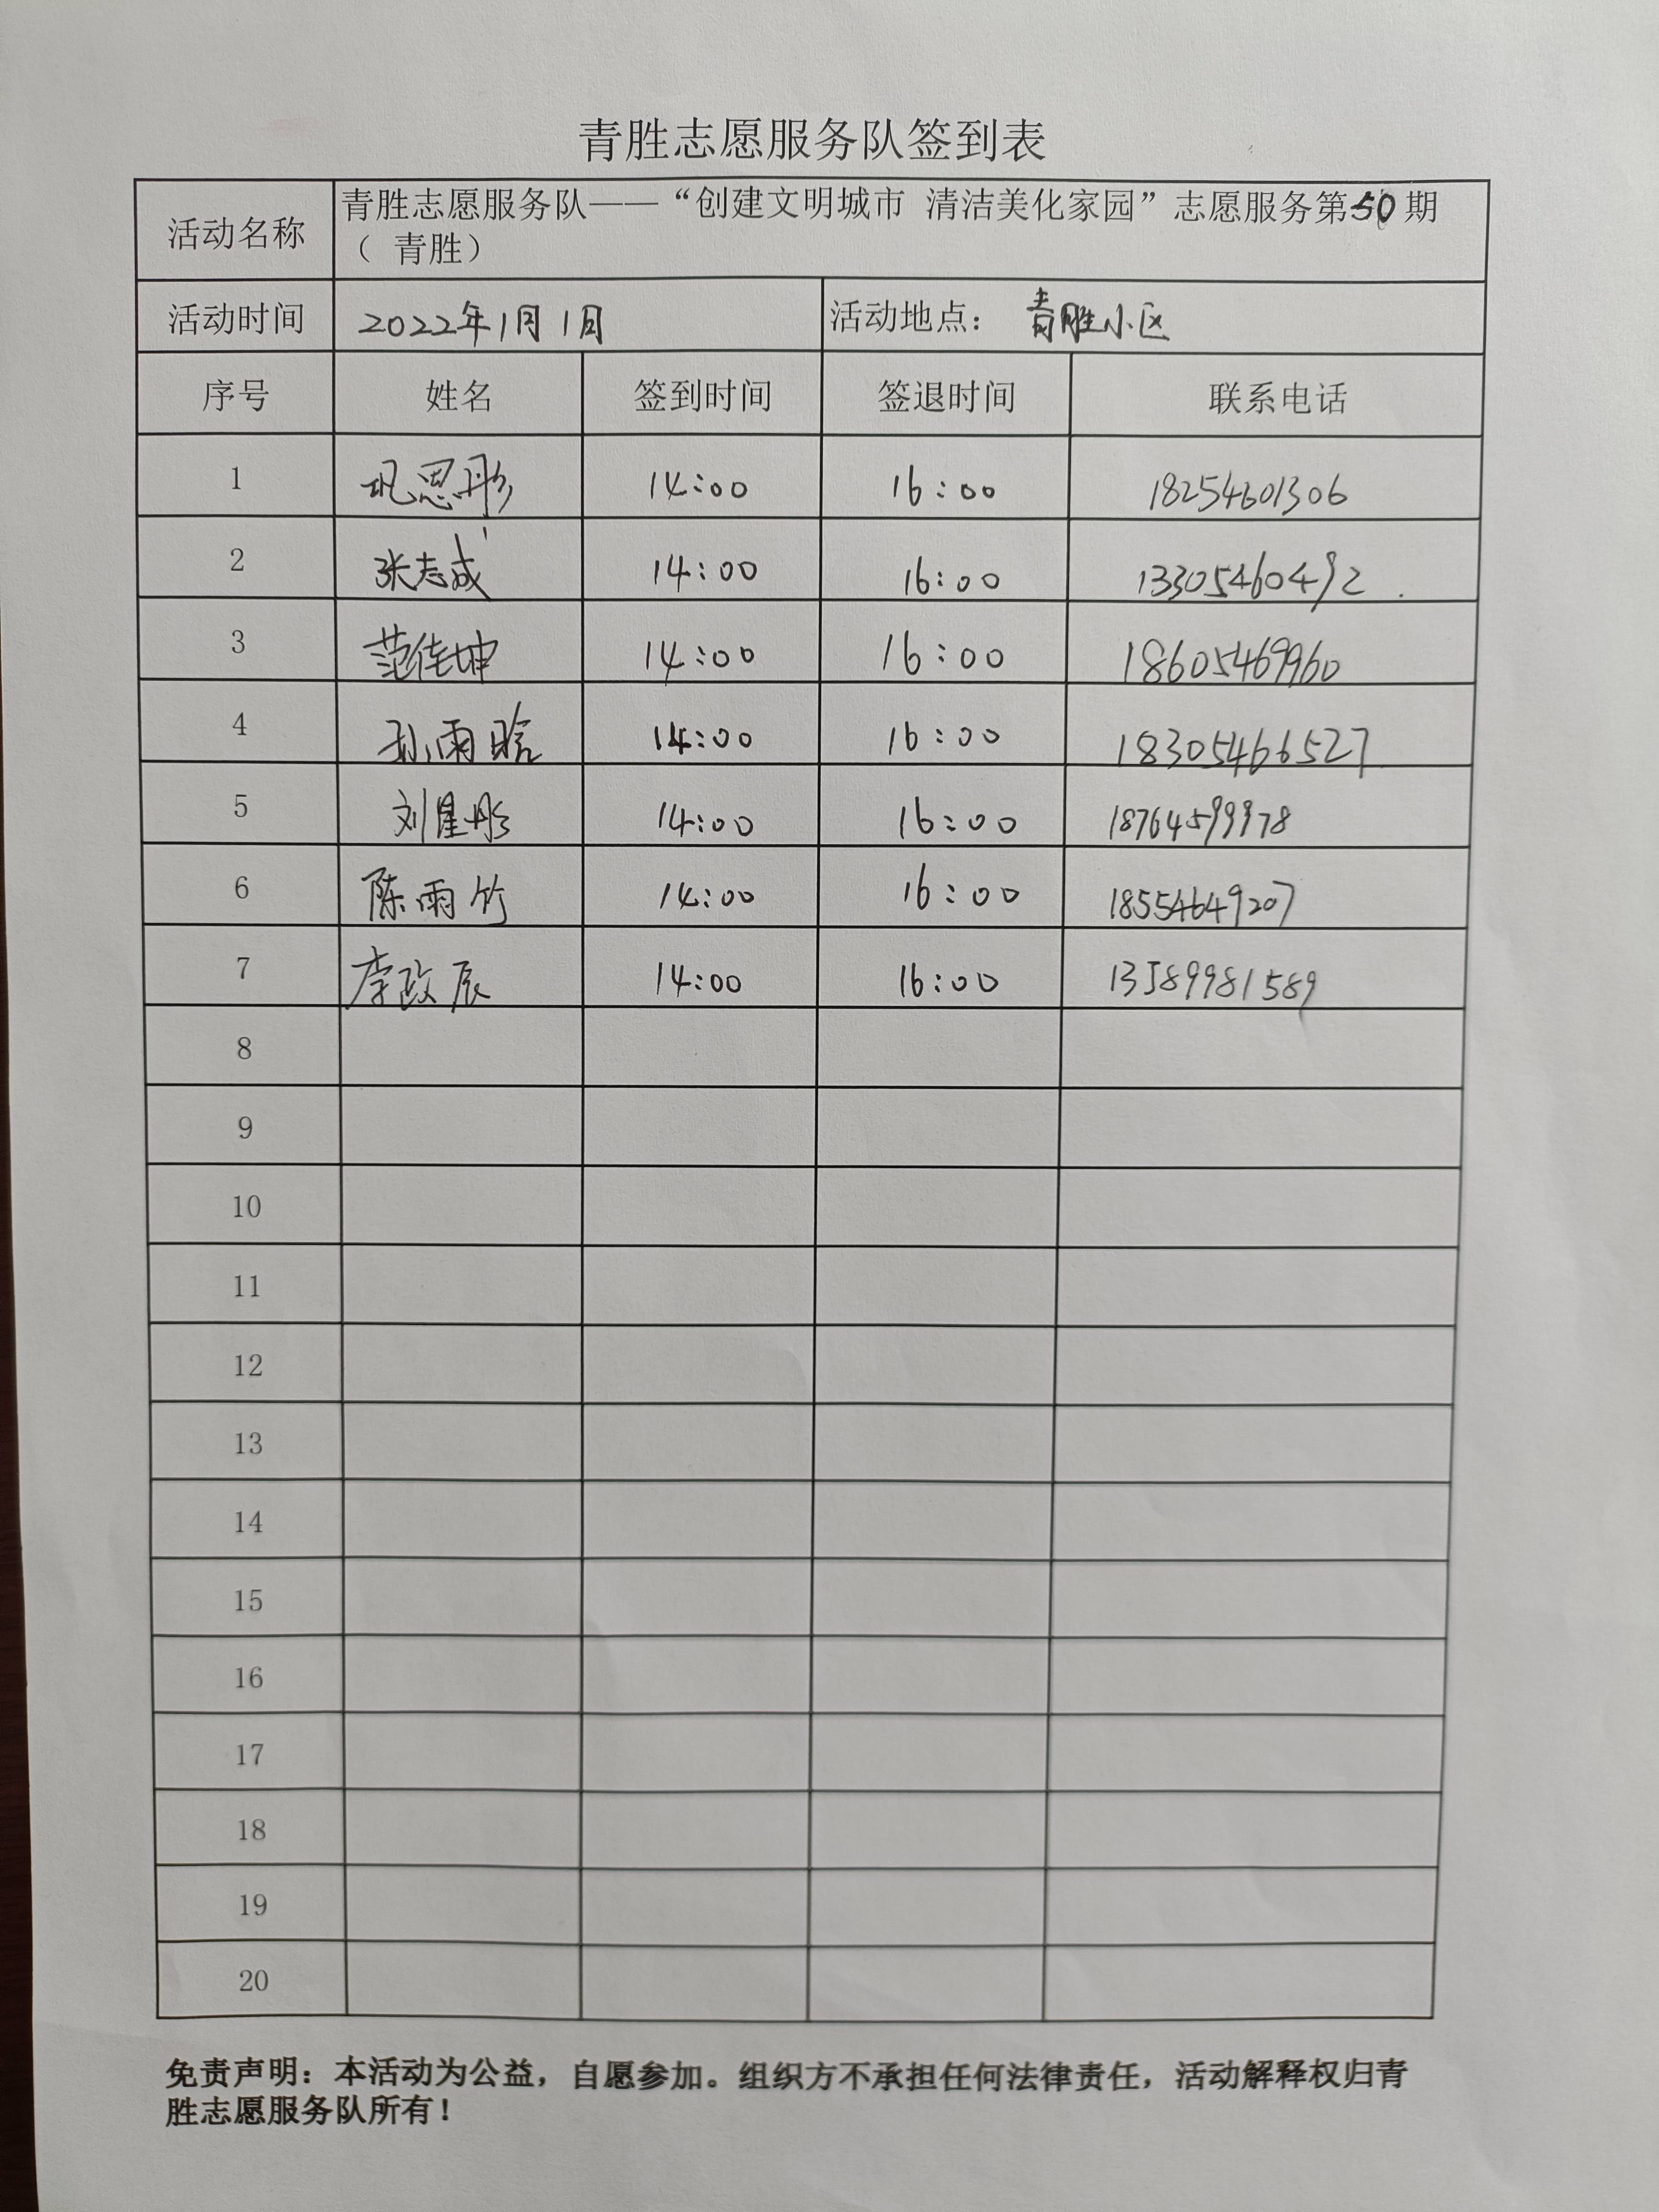 青胜志愿服务队签到表
活动名称 青胜志愿服务队——“创建文明城市 清洁美化家园”志愿服务第50期
（ 青胜）
活动时间 2022年1月1日 活动地点： 青胜小区
序号 姓名 签到时间 签退时间 联系电话
1 巩恩彤 14:00 16:00 18254601306
2 张志成 14:00 16:00 13305460492
3 范佳坤 14:00 16:00 18605469960
4 孙雨晗 14:00 16:00 18305466527
5 刘星彤 14:00 16:00 18764599978
6 陈雨竹 14:00 16:00 18554649207
7 李政辰 14:00 16:00 13589981589
8
9
10
11
12
13
14
15
16
17
18
19
20
免责声明：本活动为公益，自愿参加。组织方不承担任何法律责任，活动解释权归青
胜志愿服务队所有！